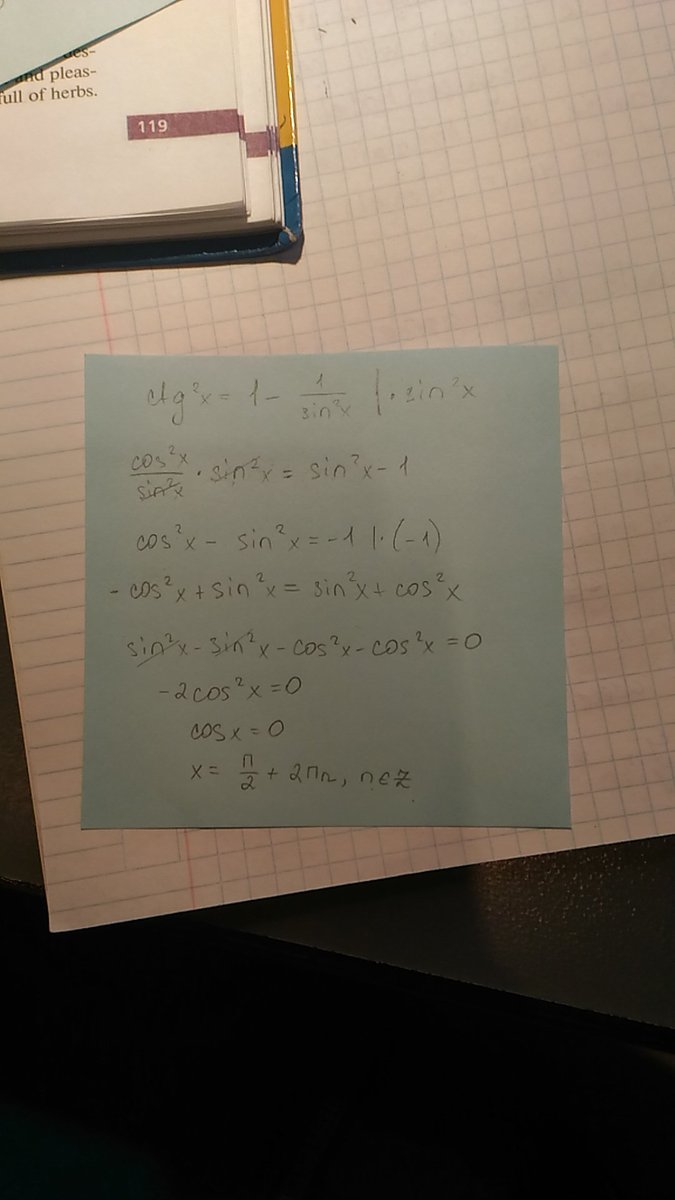 des-
and pleas-
full of herbs.
119
ctg²x = 1 - 1/sin²x | · sin²x
cos²x/sin²x · sin²x = sin²x - 1
cos²x - sin²x = -1 | · (-1)
- cos²x + sin²x = sin²x + cos²x
sin²x - sin²x - cos²x - cos²x = 0
-2cos²x = 0
cosx = 0
x = π/2 + 2πn, n∈Z